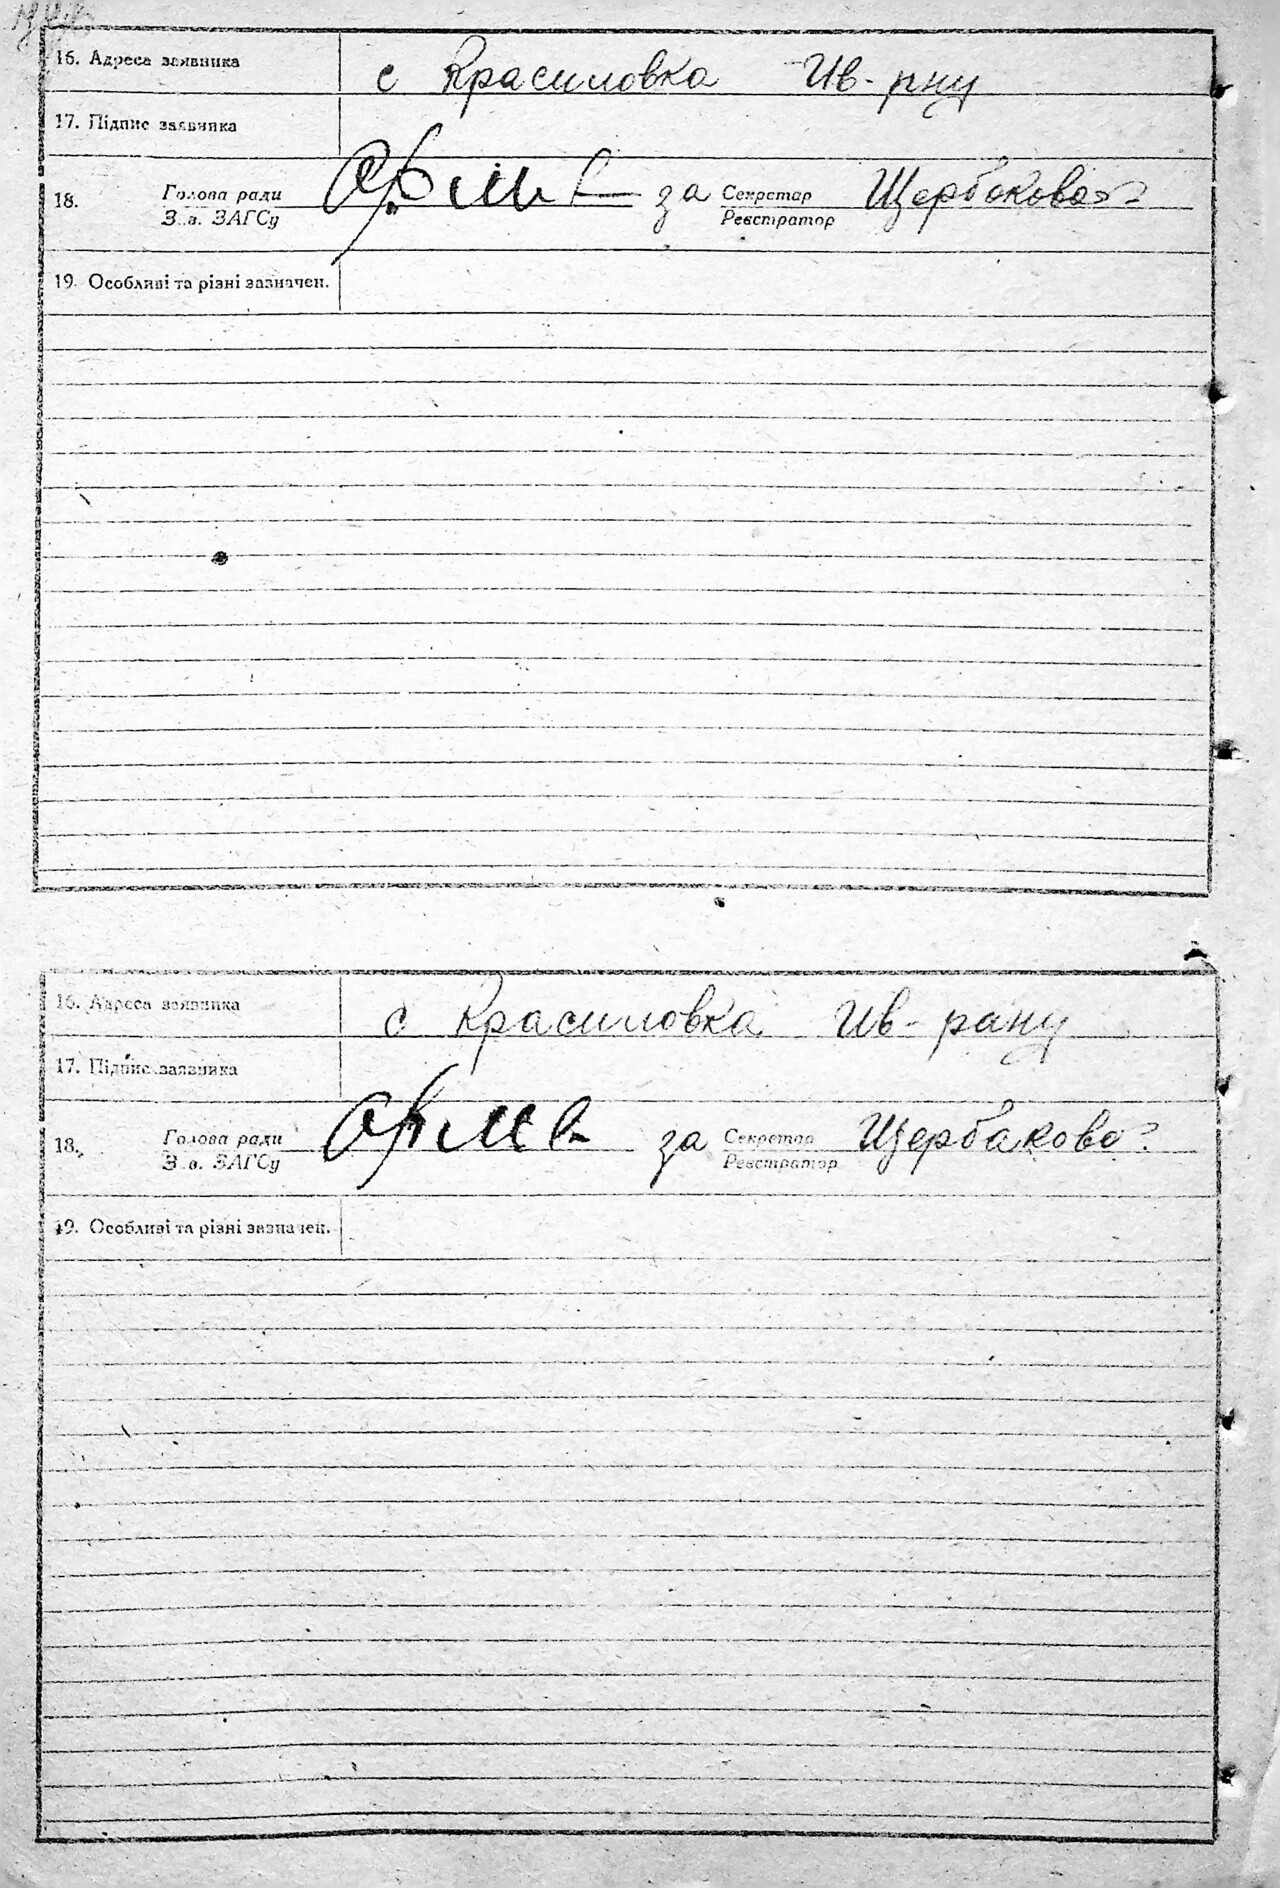 16. Адреса заявника с Красиловка Ив-рну
17. Підпис заявника
18. Голова ради за Секретар Щербакова
Зав. ЗАГСу Реєстратор
19. Особливі та різні зазначен.
16. Адреса заявника с Красиловка Ив-рану
17. Підпис заявника
18. Голова ради за Секретар Щербакова
Зав. ЗАГСу Реєстратор
19. Особливі та різні зазначен.